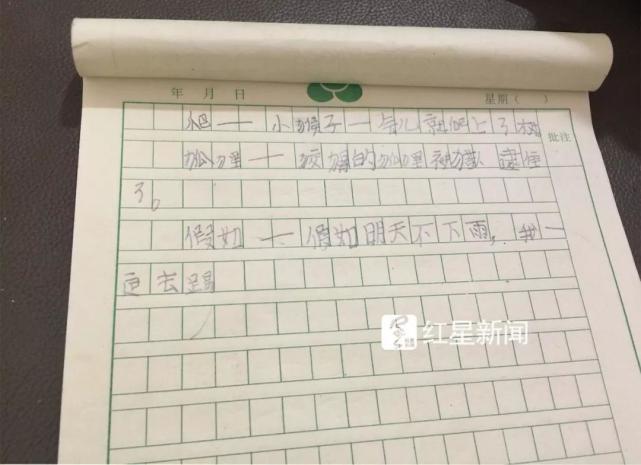 年 月 日 星期( )
爬一 小猴子一会儿就爬上了树
批注
狐狸一 狡猾的狐狸被猎 逮住
了。
假如一 假如明天不下雨,我一
定去踢
红星新闻